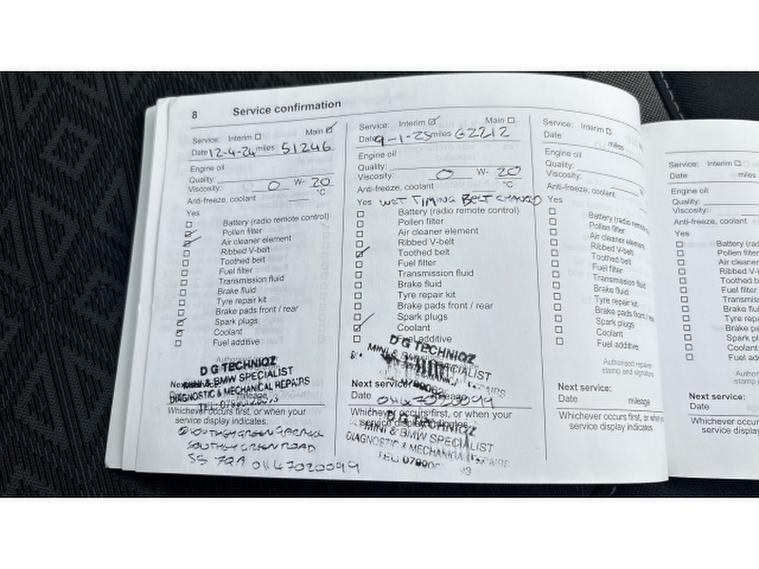 8 Service confirmation
Service: Interim ☐ Main ☑
Date 12-4-24 miles 51246
Engine oil
Quality:
Viscosity: 0 W- 20
Anti-freeze, coolant °C
Yes
☐ Battery (radio remote control)
☑ Pollen filter
☑ Air cleaner element
☐ Ribbed V-belt
☐ Toothed belt
☐ Fuel filter
☐ Transmission fluid
☐ Brake fluid
☐ Tyre repair kit
☐ Brake pads front / rear
☑ Spark plugs
☑ Coolant
☐ Fuel additive
D G TECHNIQZ
MINI & BMW SPECIALIST
DIAGNOSTIC & MECHANICAL REPAIRS
Whichever occurs first, or when your
service display indicates.
S5 7QA 01147020099
Service: Interim ☑ Main ☐
Date 9-1-25 miles 62212
Engine oil
Quality:
Viscosity: 0 W- 20
Anti-freeze, coolant °C
Yes WET TIMING BELT CHANGED
☐ Battery (radio remote control)
☐ Pollen filter
☐ Air cleaner element
☐ Ribbed V-belt
☑ Toothed belt
☐ Fuel filter
☐ Transmission fluid
☐ Brake fluid
☐ Tyre repair kit
☐ Brake pads front / rear
☐ Spark plugs
☑ Coolant
☐ Fuel additive
D G TECHNIQZ
MINI & BMW SPECIALIST
Next service:
Date 01147020099
Whichever occurs first, or when your
service display indicates.
D G TECHNIQZ
MINI & BMW SPECIALIST
DIAGNOSTIC & MECHANICAL REPAIRS
Service: Interim ☐
Date miles
Engine oil
Quality:
Viscosity:
Anti-freeze, coolant
Yes
☐ Battery (radio remote
☐ Pollen filter
☐ Air cleaner element
☐ Ribbed V-belt
☐ Toothed belt
☐ Fuel filter
☐ Transmission fluid
☐ Brake fluid
☐ Tyre repair kit
☐ Brake pads front /
☐ Spark plugs
☐ Coolant
☐ Fuel additive
Authorised repairer
stamp and signature
Next service:
Date mileage
Whichever occurs first, or
service display indicates.
Service: Interim ☐
Date miles
Engine oil
Quality:
Viscosity:
Anti-freeze, coolant
Yes
☐ Battery
☐ Pollen filter
☐ Air cleaner
☐ Ribbed V-
☐ Toothed b
☐ Fuel filter
☐ Transmis
☐ Brake flu
☐ Tyre repa
☐ Brake pa
☐ Spark pl
☐ Coolant
☐ Fuel ad
Next service:
Date
Whichever occurs
service display